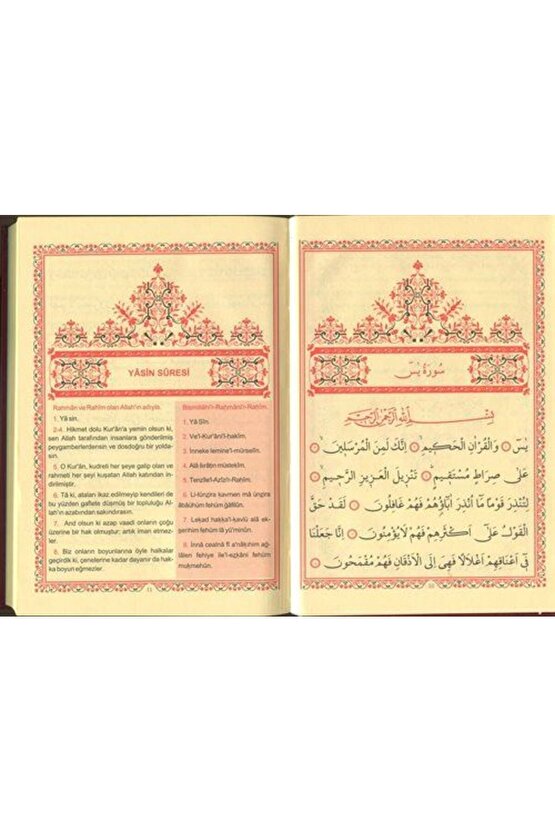 YÂSİN SÛRESİ
Rahmân ve Rahîm olan Allah'ın adıyla.
1. Yâ sin.
2-4. Hikmet dolu Kur'ân'a yemin olsun ki,
sen Allah tarafından insanlara gönderilmiş
peygamberlerdensin ve dosdoğru bir yolda-
sın.
5. O Kur'ân, kudreti her şeye galip olan ve
rahmeti her şeyi kuşatan Allah katından in-
dirilmiştir.
6. Tâ ki, ataları ikaz edilmeyip kendileri de
bu yüzden gaflete düşmüş bir topluluğu Al-
lah'ın azabından sakındırasın.
7. And olsun ki azap vaadi onların çoğu
üzerine bir hak olmuştur; artık iman etmez-
ler.
8. Biz onların boyunlarına öyle halkalar
geçirdik ki, çenelerine kadar dayanır da hak-
ka boyun eğmezler.
Bismillâhi'r-Rahmâni'r-Rahîm.
1. Yâ Sîn.
2. Ve'l-Kur'âni'l-hakîm.
3. İnneke lemine'l-mürselîn.
4. Alâ sırâtın müstekîm.
5. Tenzîle'l-Azîzi'r-Rahîm.
6. Li-tünzira kavmen mâ ünzira
âbâühüm fehüm gâfilûn.
7. Lekad hakka'l-kavlü alâ ek-
serihim fehüm lâ yü'minûn.
8. İnnâ cealnâ fî a'nâkıhim ağ-
lâlen fehiye ile'l-ezkâni fehüm
mukmehûn.
11
سُورَةُ يٰسٓ
بِسْمِ اللّٰهِ الرَّحْمٰنِ الرَّحِيمِ
يٰسٓ ۝ وَالْقُرْاٰنِ الْحَكِيمِ ۝ اِنَّكَ لَمِنَ الْمُرْسَلِينَ ۝
عَلٰى صِرَاطٍ مُسْتَقِيمٍ ۝ تَنْزِيلَ الْعَزِيزِ الرَّحِيمِ ۝
لِتُنْذِرَ قَوْمًا مَٓا اُنْذِرَ اٰبَٓاؤُهُمْ فَهُمْ غَافِلُونَ ۝ لَقَدْ حَقَّ
الْقَوْلُ عَلٰٓى اَكْثَرِهِمْ فَهُمْ لَا يُؤْمِنُونَ ۝ اِنَّا جَعَلْنَا
فِٓى اَعْنَاقِهِمْ اَغْلَالًا فَهِىَ اِلَى الْاَذْقَانِ فَهُمْ مُقْمَحُونَ ۝